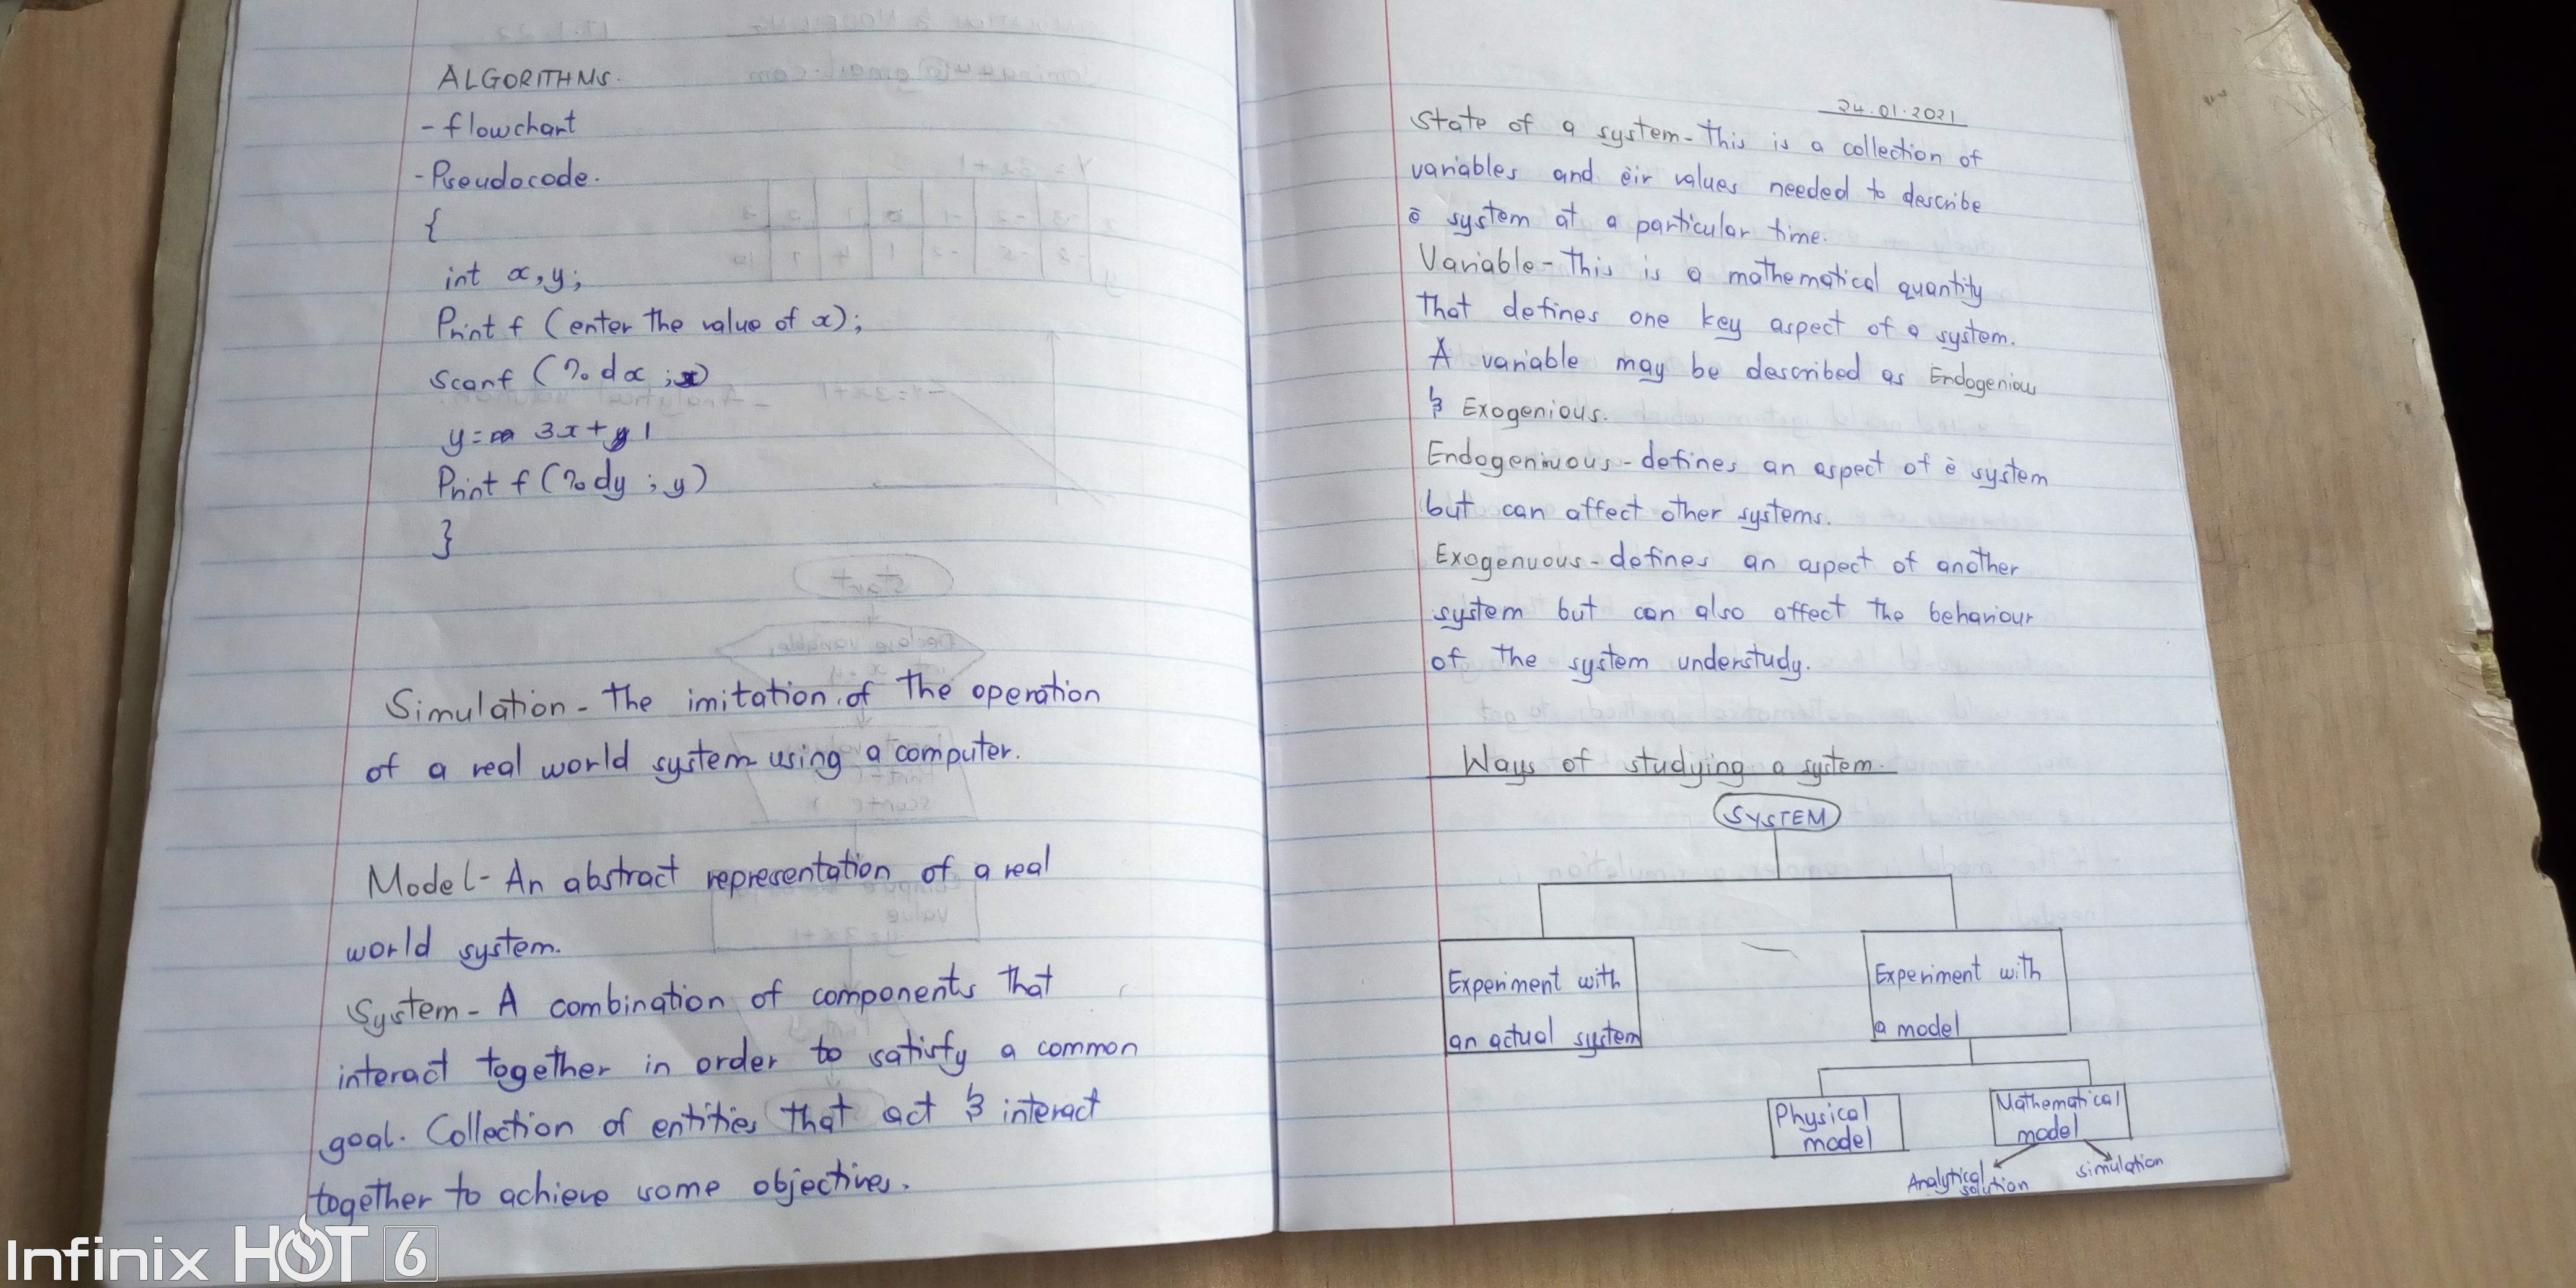 ALGORITHMS.
- flowchart
- Pseudocode.
{
int x,y;
Print f (enter the value of x);
Scanf (%dx ;x)
y = 3x + 1
Print f (%dy ; y)
}
Simulation - The imitation of the operation
of a real world system using a computer.
Model - An abstract representation of a real
world system.
System - A combination of components that
interact together in order to satisfy a common
goal. Collection of entities that act & interact
together to achieve some objectives.
24.01.2021
State of a system - This is a collection of
variables and ēir values needed to describe
ē system at a particular time.
Variable - This is a mathematical quantity
that defines one key aspect of a system.
A variable may be described as Endogenious
& Exogenious.
Endogeniuous - defines an aspect of ē system
but can affect other systems.
Exogenuous - defines an aspect of another
system but can also affect the behaviour
of the system understudy.
Ways of studying a system.
SYSTEM
Experiment with
an actual system
Experiment with
a model
Physical
model
Mathematical
model
Analytical
solution
simulation
Infinix HOT 6